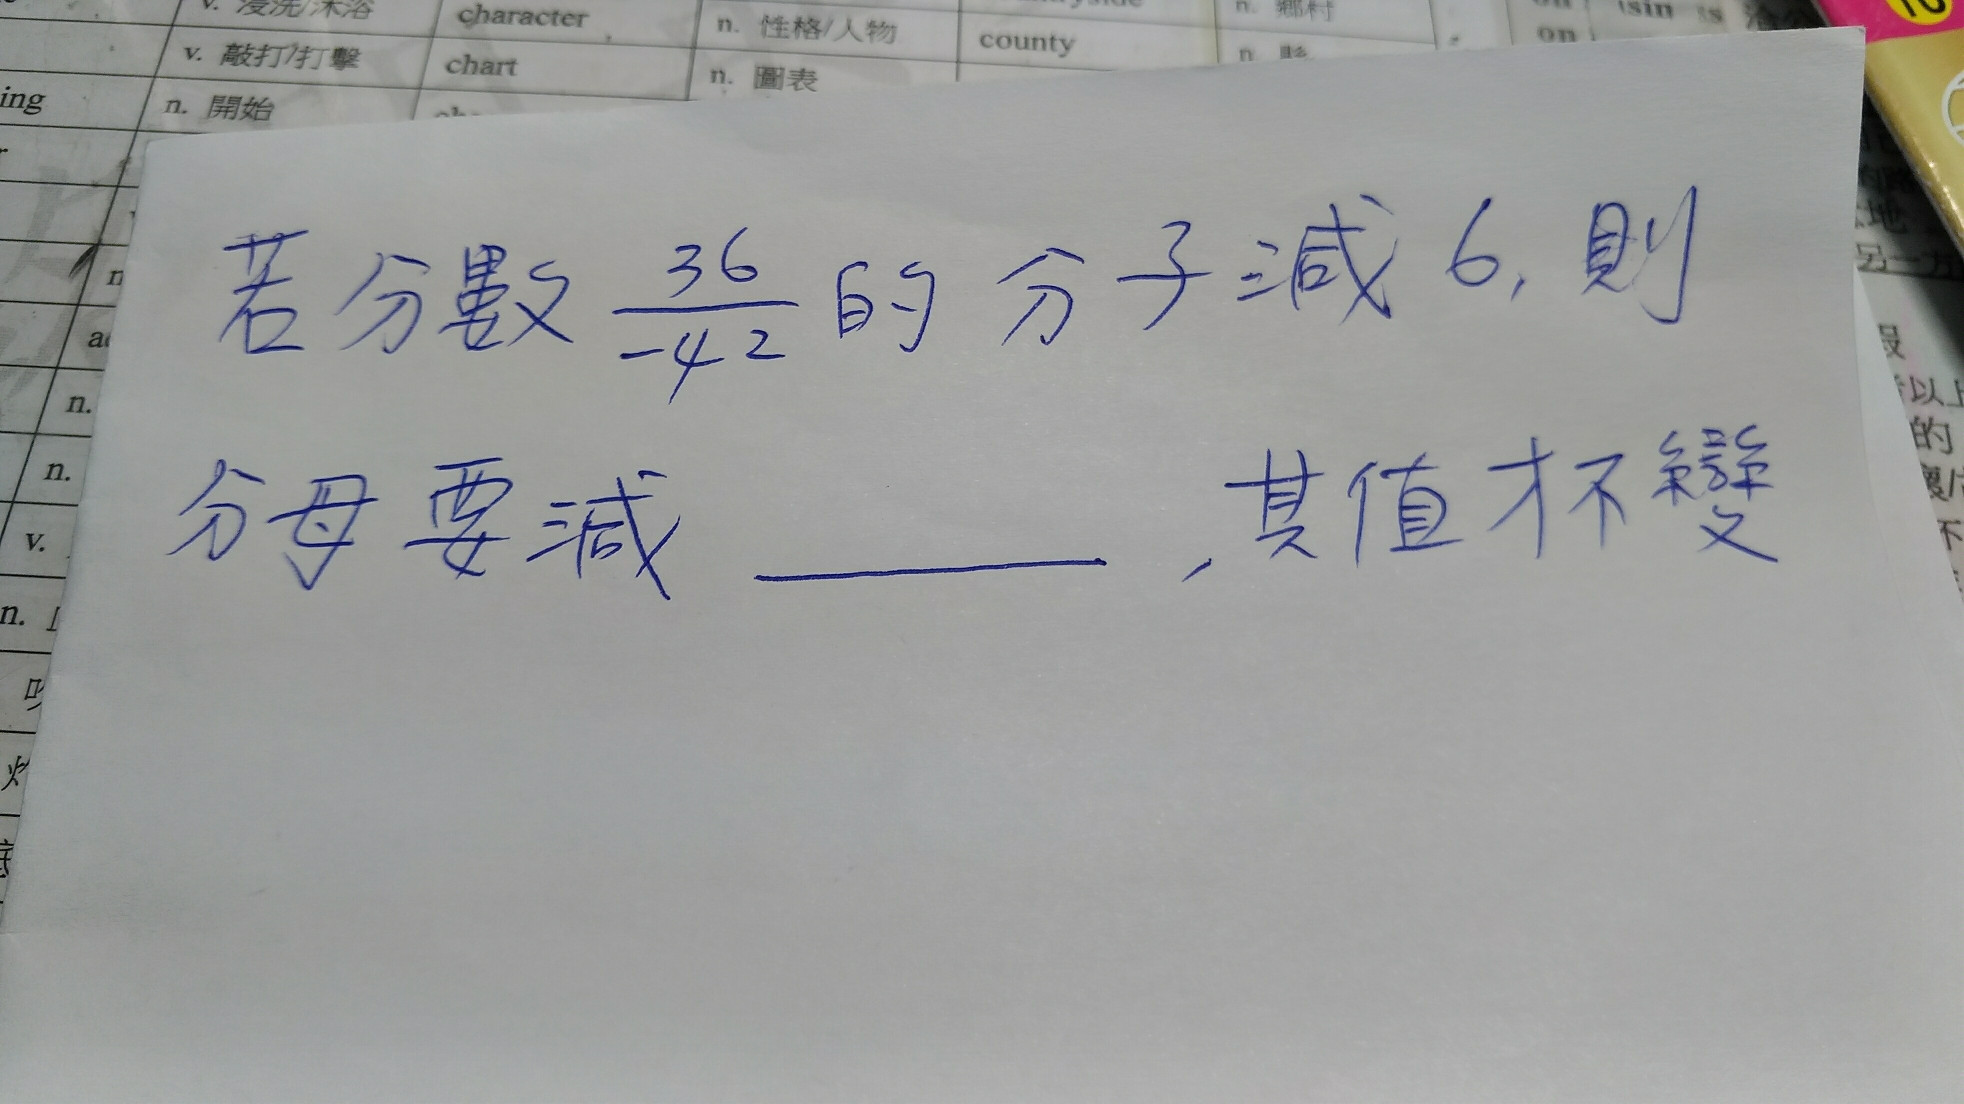 v. 浸洗/沐浴 character n. 性格/人物 county n. 鄉村
v. 敲打/打擊 chart n. 圖表 n. 縣 on
ing n. 開始
若分數 36/-42 的分子減6,則
分母要減 ______ ,其值才不變
n.
n.
v.
n.